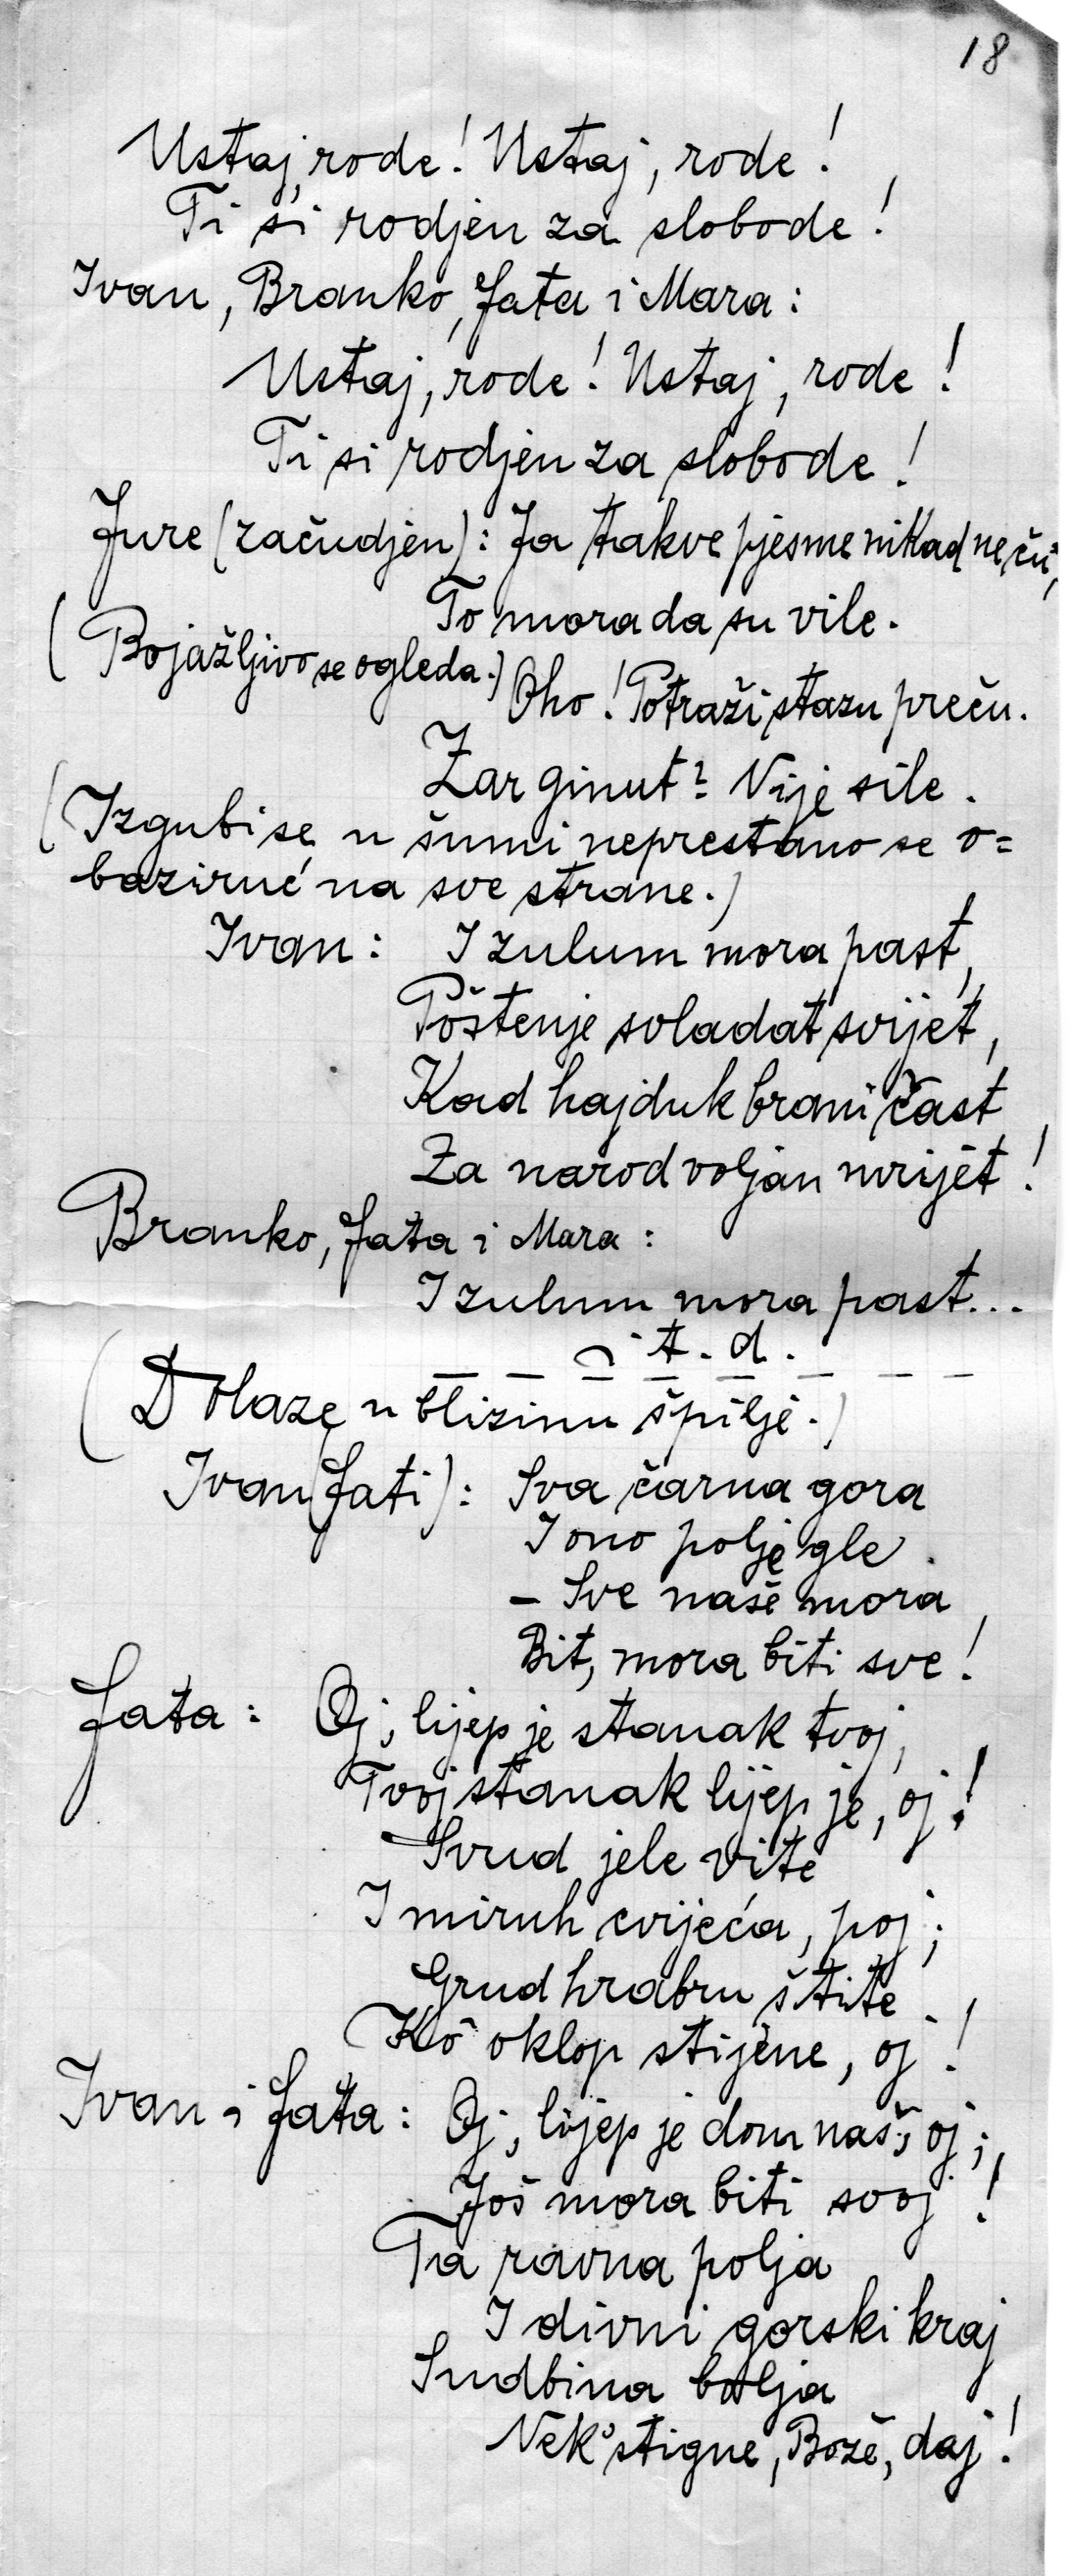 18
Ustaj, rode! Ustaj, rode!
Ti si rodjen za slobode!
Ivan, Branko, Fata i Mara:
Ustaj, rode! Ustaj, rode!
Ti si rodjen za slobode!
Jure (začudjen): Ja takve pjesme nikad ne čú,
To mora da su vile.
(Bojažljivo se ogleda.)
Oho! Potraži stazu preču.
Zar ginut? Nije sile.
(Izgubi se u šumi neprestano se o=
bazirué na sve strane.)
Ivan: I zulum mora past,
Poštenje svladat svijet,
Kad hajduk brani čast
Za narod voljan mrijet!
Branko, Fata i Mara:
I zulum mora past...
i t. d.
(Dolaze u blizinu špilje.)
Ivan (Fati): Sva čarna gora
I ono polje gle.
– Sve naše mora
Bit, mora biti sve!
Fata: Oj, lijep je stanak tvoj,
Tvoj stanak lijep je, oj!
Svud jele vite
I miruh cvijeća, poj;
Grud hrabru štite
Kô oklop stijene, oj!
Ivan i Fata: Oj, lijep je dom naš, oj;
Još mora biti svoj!
Ta ravna polja
I divni gorski kraj
Sudbina bolja
Nek' stigne, Bože, daj!